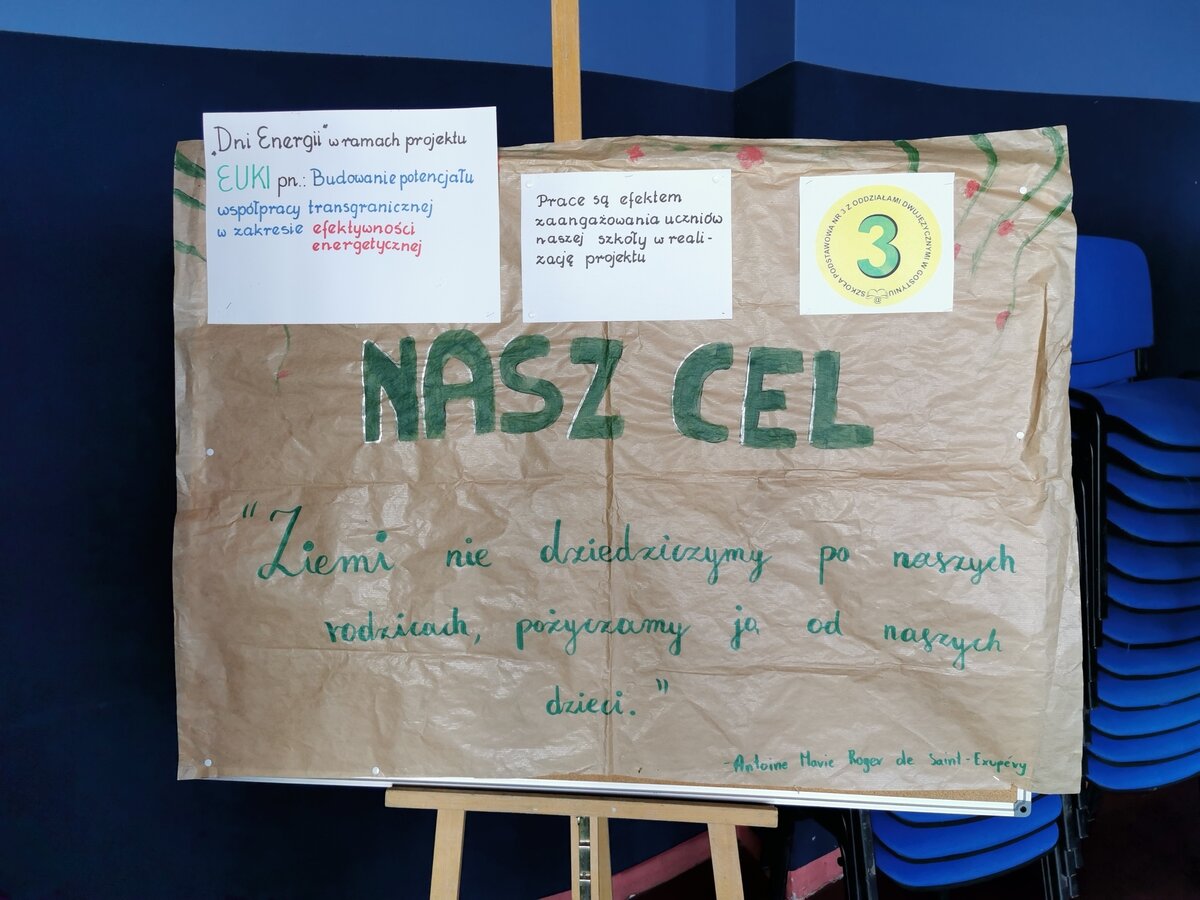 „Dni Energii” w ramach projektu
EUKI pn.: Budowanie potencjału
współpracy transgranicznej
w zakresie efektywności
energetycznej
Prace są efektem
zaangażowania uczniów
naszej szkoły w reali-
zację projektu
SZKOŁA PODSTAWOWA NR 3 Z ODDZIAŁAMI DWUJĘZYCZNYMI W GOSTYNIU
3
NASZ CEL
"Ziemi nie dziedziczymy po naszych
rodzicach, pożyczamy ją od naszych
dzieci."
-Antoine Marie Roger de Saint-Exupéry